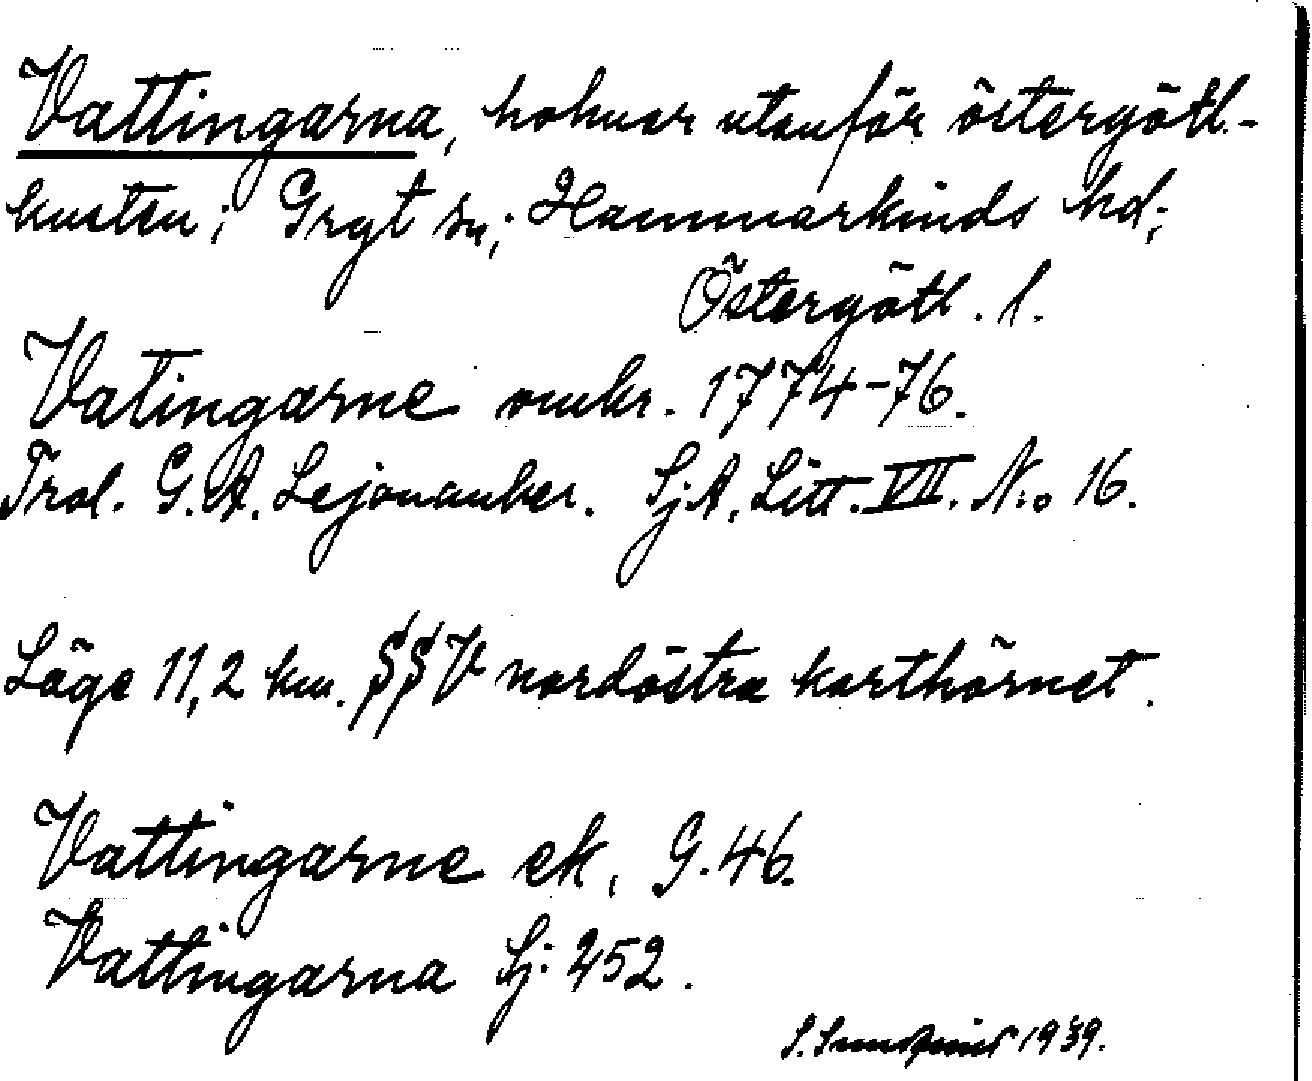 Vattingarna, holmar utanför östergötl.-
kusten; Gryt sn; Hammarkinds hd;
Östergötl. l.
Vatingarne omkr. 1774-76.
Trol. G. A. Lejonanker. Sj.A. Litt. VII. N:o 16.
Läge 11,2 km. SSV nordöstra karthörnet.
Vattingarne ek. G. 46.
Vattingarna Sj. 252.
S. 1939.